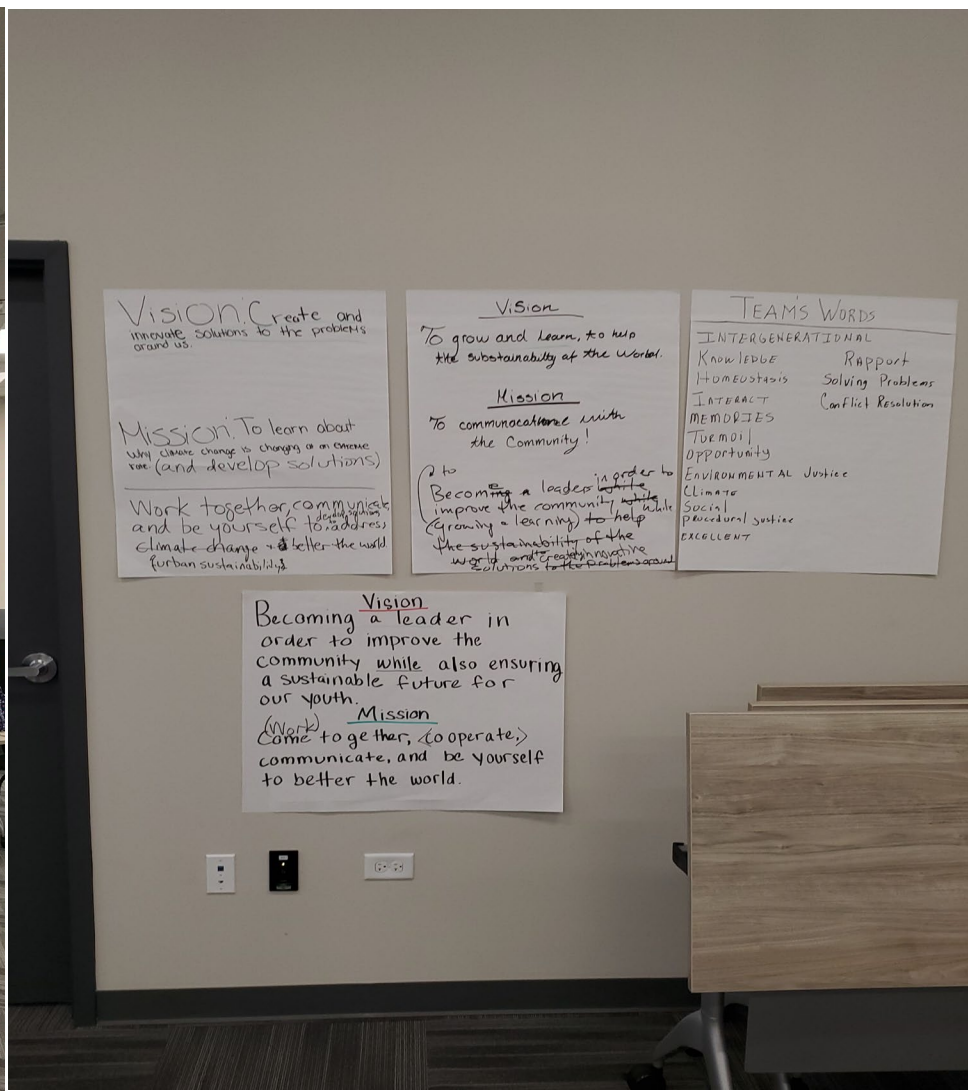 Vision: Create and
innovate solutions to the problems
around us.
Mission: To learn about
why climate change is changing at an extreme
rate. (and develop solutions)
Work together, communicate,
and be yourself to address
climate change + better the world
Vision
To grow and learn, to help
the substainabilty of the World.
Mission
To communacatione with
the Community!
to
in order to
Become a leader while
improve the community while while
(growing + learning) to help
the sustainability of the
world and create innovative
solutions to the problems around
TEAM'S WORDS
INTERGENERATIONAL
KNOWLEDGE Rapport
HOMEUSTASIS Solving Problems
INTERACT Conflict RESOLUTION
MEMORIES
TURMOIL
OPPORTUNITY
ENVIRONMENTAL Justice
CLIMATE
Social
procedural justice
EXCELLENT
Vision
Becoming a leader in
order to improve the
community while also ensuring
a sustainable future for
our youth.
(Work) Mission
Come together, <cooperate,>
communicate, and be yourself
to better the world.